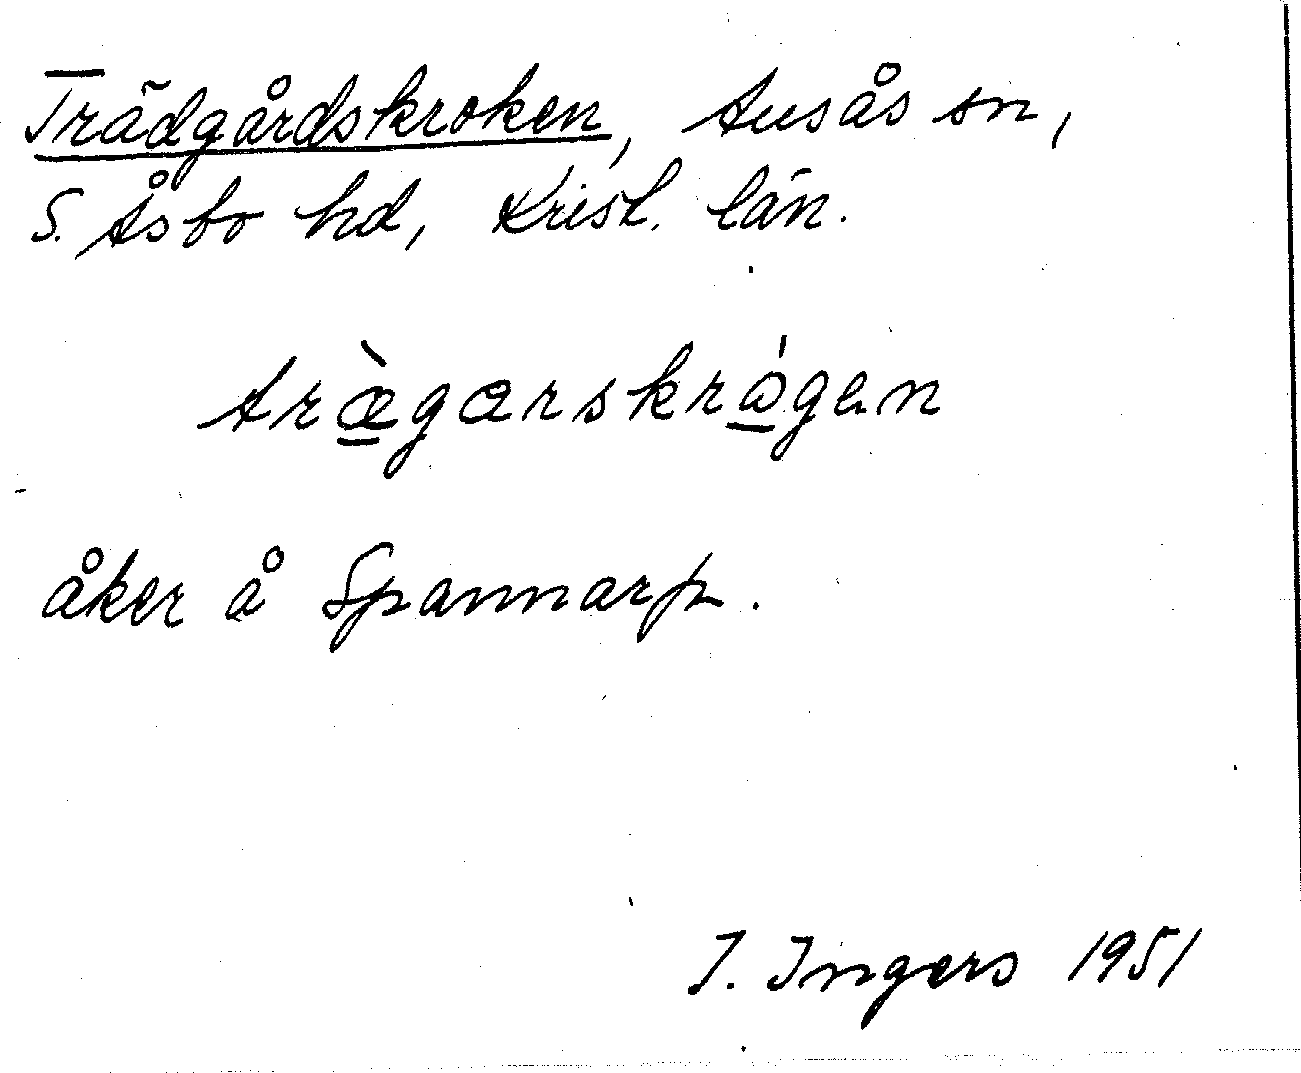 Trädgårdskroken, Ausås sn,
S. Åsbo hd, Krist. län.
træ̱̀gærskrɷ̱́gen
åker å Spannarp.
I. Ingers 1951